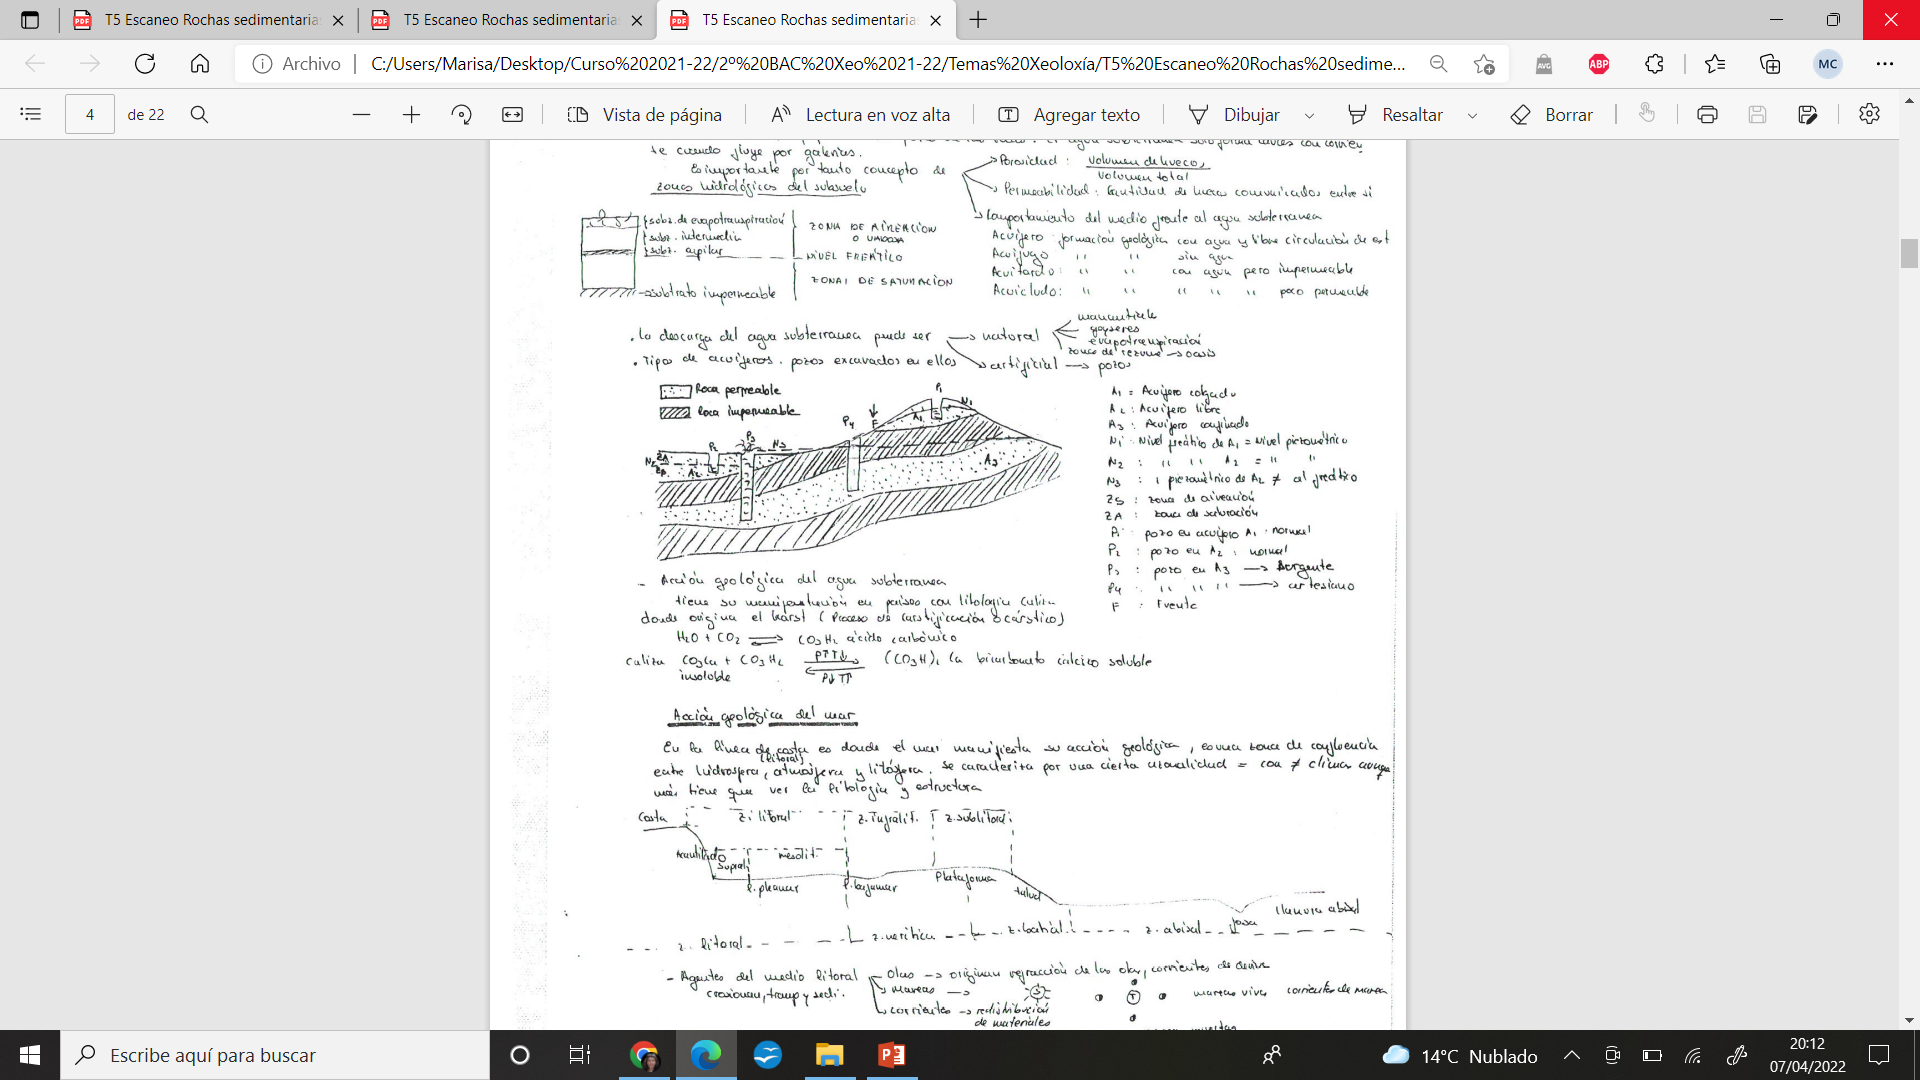 T5 Escaneo Rochas sedimentaria
T5 Escaneo Rochas sedimentaria
T5 Escaneo Rochas sedimentaria
Archivo
C:/Users/Marisa/Desktop/Curso%202021-22/2º%20BAC%20Xeo%2021-22/Temas%20Xeoloxía/T5%20Escaneo%20Rochas%20sedime...
ABP
MC
4 de 22
Vista de página
Lectura en voz alta
Agregar texto
Dibujar
Resaltar
Borrar
te cuando fluye por galerías.
Es importante por tanto concepto de
zonas hidrológicas del subsuelo
Porosidad: volumen de huecos
volumen total
Permeabilidad: Cantidad de huecos comunicados entre si
Comportamiento del medio frente al agua subterranea
Acuífero: formación geológica con agua y libre circulación de est
Acuifugo " " sin agua
Acuitardo: " " con agua pero impermeable
Acuicludo: " " " " " poco permeable
subz. de evapotranspiración
subz. intermedia
subz. capilar
substrato impermeable
ZONA DE AIREACION
O VADOSA
NIVEL FREÁTICO
ZONA DE SATURACION
. La descarga del agua subterranea puede ser → natural
manantiale
geyseres
evapotranspiración
zona de rezume → oasis
artificial → pozos
. Tipos de acuíferos. pozos excavados en ellos
Roca permeable
Roca impermeable
P1
N1
A1
F
P4
P3
P2
N3
N2
ZA
A2
A3
A1 = Acuífero colgado
A2: Acuífero libre
A3: Acuífero confinado
N1: Nivel freático de A1 = Nivel piezométrico
N2 : " " A2 = " "
N3 : " piezométrico de A2 ≠ al freático
ZS : zona de aireación
ZA : zona de saturación
P1 : pozo en acuífero A1. normal
P2 : pozo en A2. normal
P3 : pozo en A3 → Surgente
P4 : " " " → artesiano
F : Fuente
- Acción geológica del agua subterranea
tiene su manifestación en países con litología caliza
donde origina el karst (Proceso de karstificación o cárstico)
H2O + CO2 ⇌ CO3H2 ácido carbónico
caliza CO3Ca + CO3H2 P↑T↓ (CO3H)2 Ca bicarbonato cálcico soluble
insoluble P↓T↑
Acción geológica del mar
En la línea de costa es donde el mar manifiesta su acción geológica, es una zona de confluencia
(litoral)
entre hidrosfera, atmósfera y litósfera. Se caracteriza por una cierta azonalidad = con ≠ climas aunque
más tiene que ver la litología y estructura
Costa
z. litoral
z. Infralit.
z. sublitoral
acantilado
supral
mesolit.
l. pleamar
l. bajamar
Plataforma
talud
fosa
llanura abisal
z. litoral
z. nerítica
z. batial
z. abisal
- Agentes del medio litoral
erosionan, transp y sedi.
Olas → originan refracción de las olas, corrientes de deriva
mareas →
S
T
mareas vivas
corrientes de marea
corrientes → redistribución
de materiales
Escribe aquí para buscar
14°C Nublado
20:12
07/04/2022